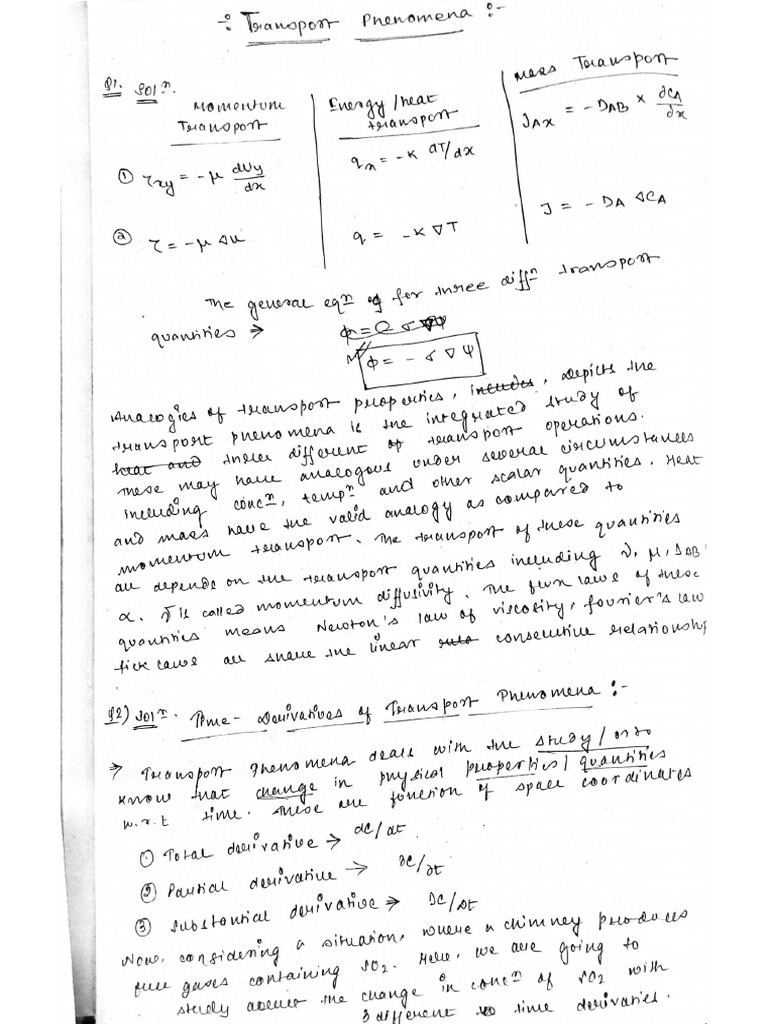 ÷ Transport Phenomena :-
Q1. Solⁿ.
Momentum Transport | Energy/heat transport | Mass Transport
① τxy = -μ dVy/dx | qx = -K dT/dx | JAx = -DAB × ∂CA/∂x
② τ = -μ Δu | q = -K ∇T | J = -DA ΔCA
The general eqⁿ of for three diffⁿ transport
quantities → ϕ = - σ ∇ψ
Analogies of transport properties, depicts the
transport phenomena is the integrated study of
heat and three different of transport operations.
These may have analogous under several circumstances
including concⁿ, tempⁿ and other scalar quantities. Heat
and mass have the valid analogy as compared to
momentum transport. The transport of these quantities
all depends on the transport quantities including ν, μ, DAB,
α. γ is called momentum diffusivity. The flux laws of these
quantities means Newton's law of viscosity, fourier's law
fick laws all share the linear consecutive relationship
Q2) Solⁿ. Time- Derivatives of Transport Phenomena :-
→ Transport Phenomena deals with the study / or to
know that change in physical properties / quantities
w.r.t time. These are function of space coordinates
① Total derivative → dc/dt
② Partial derivative → ∂c/∂t
③ Substantial derivative → Dc/Dt
Now, considering a situation, where a chimney produces
flue gases containing SO2. Here, we are going to
study about the change in concⁿ of SO2 with
3 different to time derivaties.